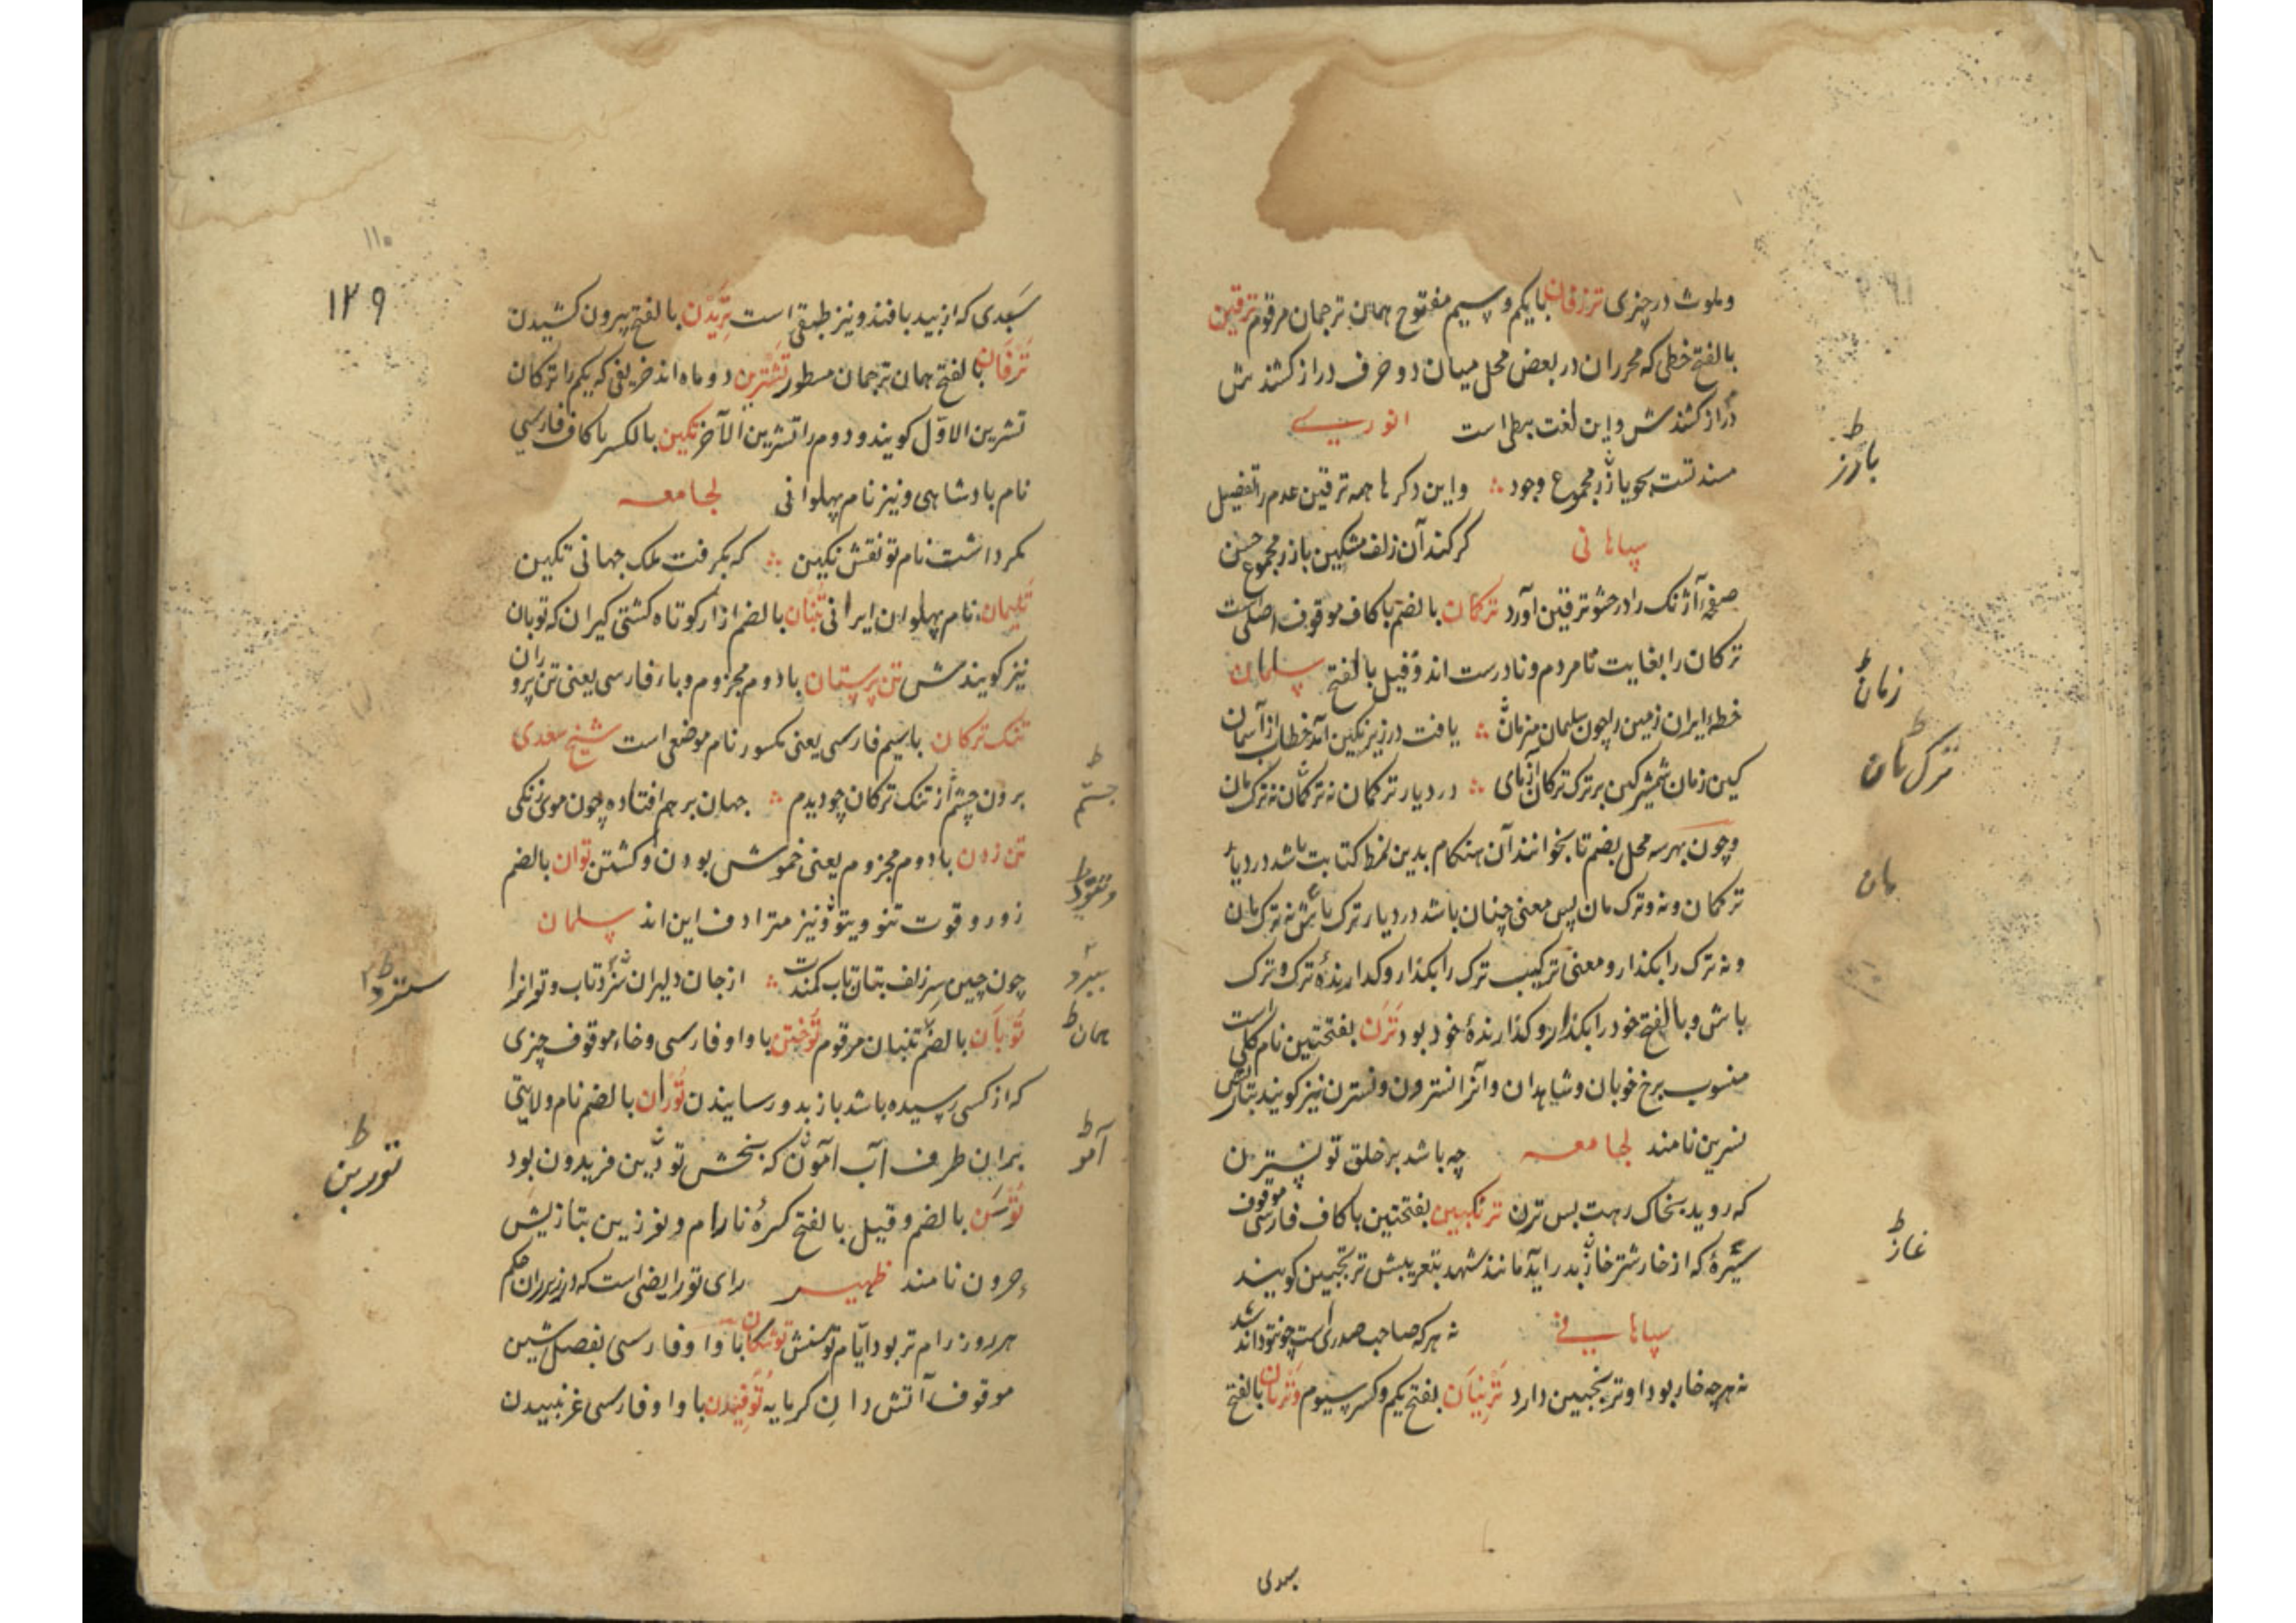 وملوث در چیزی ترزفان بایکم وسیم مفتوح همان ترجمان مرقوم ترقین
بالفتح خطی که محرران در بعض محل میان دو حرف دراز کشند مش
دراز کشندش واین لغت نبطی است انوری
مسندتست بحو بارز مجموع وجود واین دکرها همه ترقین عدم را تفضیل
سپاهانی کرکند آن زلف مشکین بارز مجموع حسن
صفحه آژنک را در حشو ترقین آورد ترکان بالضم باکاف موقوف اصلیست
ترکان را بغایت نامردم ونادرست اند وقیل بالفتح سلمان
خطه ایران زمین را چون سلیمان زمان یافت در زیر نکین آمد خطاب از آسمان
کین زمان شمشیر کین بر ترک ترکان آزمای در دیار ترکمان نه ترکمان نه ترک مان
وچون بهر سه محل بضم تا بخوانند آن هنکام بدین نمط کتابت باشد در دیار
ترکمان ونه وترک مان پس معنی چنان باشد در دیار ترک مانش نه ترک مان
ونه ترک را بکذار ومعنی ترکیب ترک را بکذار وکدارندهٔ ترک وترک
باش وبالفتح خود را بکذار وکذارندهٔ خود بود ترن بفتحتین نام کلی است
منسوب برخ خوبان وشاهدان وآنرا نسترون ونسترن نیز کویند بتازیش
نسرین نامند لجامعه چه باشد بر خلق تو نسترن
که روید بخاک رهت بس ترن ترنکبین بفتحتین باکاف فارسی موقوف
شیرهٔ که از خار شتر خار بدر آید مانند شهد بتعریبش ترنجبین کویند
سپاهانی نه هرکه صاحب صدر است چو تو داند شد
نه هرچه خار بود او ترنجبین دارد ترنیان بفتح یکم وکسر سیوم وترنان بالفتح
بارز
زمان
ترک مان
مان
غاز
سبدی
سبدی که از بید بافند ونیز طبقی است تریدن بالفتح بیرون کشیدن
ترفان بالفتح همان ترجمان مسطور تشرین دو ماه اند خریفی که یکم را ترکان
تشرین الاول کویند ودوم را تشرین الآخر تکین بالکسر باکاف فارسی
نام بادشاهی ونیز نام پهلوانی لجامعه
مکر داشت نام تو نقش نکین که بکرفت ملک جهانی تکین
تلیمان نام پهلوان ایرانی تنبان بالضم ازار کوتاه کشتی کیران که توبان
نیز کویندش تن پرستان بادوم مجزوم وباء فارسی یعنی تن پروران
تنک ترکان باسیم فارسی یعنی مکسور نام موضعی است شیخ سعدی
برون جستم از تنک ترکان چو دیدم جهان برهم افتاده چون موی زنکی
تن زدن بادوم مجزوم یعنی خموش بودن وکشتن توان بالضم
زور وقوت تنو ویتو ونیز مترادف این اند سلمان
چون چین سر زلف بتان تاب کمندت از جان دلیران سترد تاب وتوانرا
توبان بالضم تنبان مرقوم توختن باواو فارسی وخاء موقوف چیزی
که از کسی رسیده باشد باز بدو رسانیدن توران بالضم نام ولایتی
بران طرف آب آمون که بخش تور بن فریدون بود
توسن بالضم وقیل بالفتح کرهٔ نارام ونو زین بتازیش
حرون نامند ظهیر رای تو رایضی است که در زیر ران حکم
هر روز رام تر بود ایام توسنش توشکان باواو فارسی بفصل شین
موقوف آتش دان کرمابه توفیدن باواو فارسی غرنبیدن
۱۱۰
۱۲۹
جستم
سترد
همان
آمو
تور بن